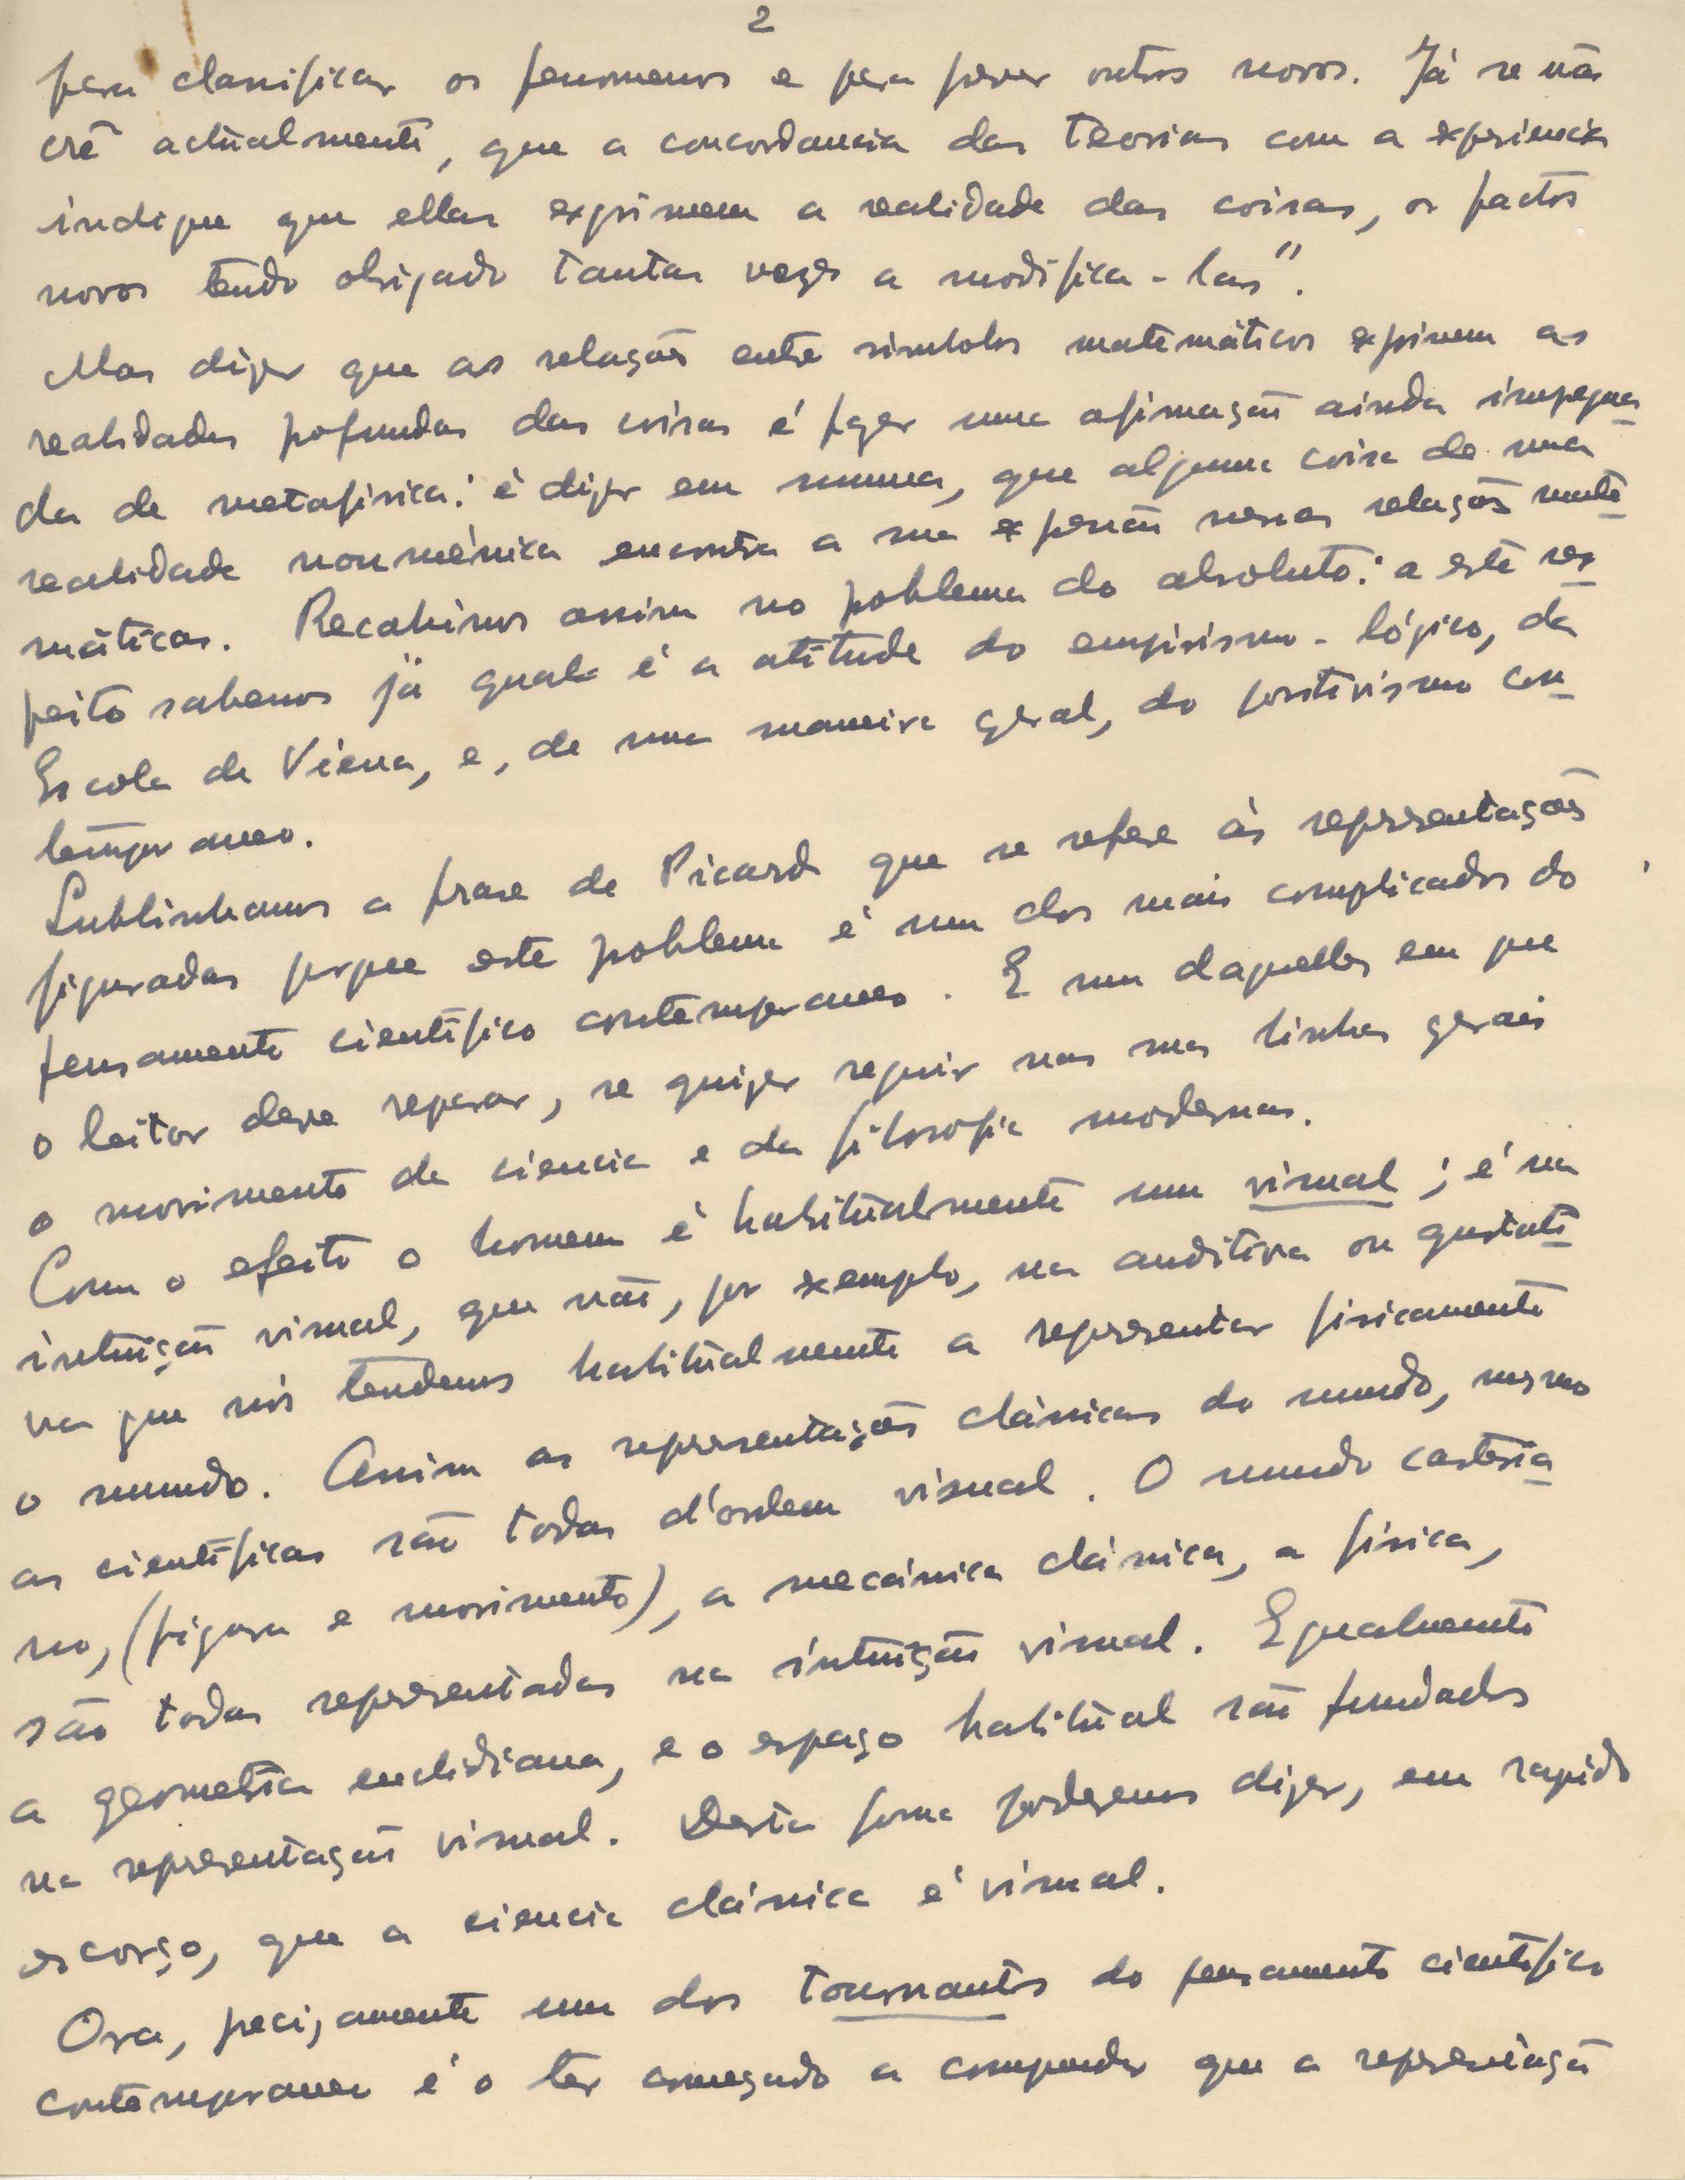 2
para classificar os fenomenos e para prever outros novos. Já se não
crê actualmente, que a concordancia das teorias com a experiencia
indique que ellas exprimem a realidade das coisas, os factos
novos tendo obrigado tantas vezes a modifica-las".
Mas dizer que as relações entre simbolos matemáticos exprimem as
realidades profundas das coisas é fazer uma afirmação ainda impregna-
da de metafisica: é dizer em summa, que alguma coisa de uma
realidade noumènica encontra a sua expressão nessas relações mate-
máticas. Recahimos assim no problema do absoluto: a este res-
peito sabemos já qual é a atitude do empirismo-lógico, da
Escola de Viena, e, de uma maneira geral, do positivismo con-
temporaneo.
Sublinhamos a frase de Picard que se refere às representações
figuradas porque este problema é um dos mais complicados do
pensamento cientifico contemporaneo. E um daquelles em que
o leitor deve reparar, se quizer seguir nas suas linhas gerais
o movimento da ciencia e da filosofia modernas.
Com o efeito o homem é habitualmente um visual; é na
intuição visual, que não, por exemplo, na auditiva ou gustati-
va que nós tendemos habitualmente a representar fisicamente
o mundo. Assim as representações clássicas do mundo, mesmo
as cientificas são todas d'ordem visual. O mundo cartesia-
no, (figura e movimento), a mecánica clássica, a fisica,
são todas representadas na intuição visual. Egualmente
a geometria euclidiana, e o espaço habitual são fundados
na representação visual. Desta forma poderemos dizer, em rapido
escorço, que a ciencia clássica é visual.
Ora, precizamente um dos tournants do pensamento cientifico
contemporaneo é o ter começado a comprender que a representação